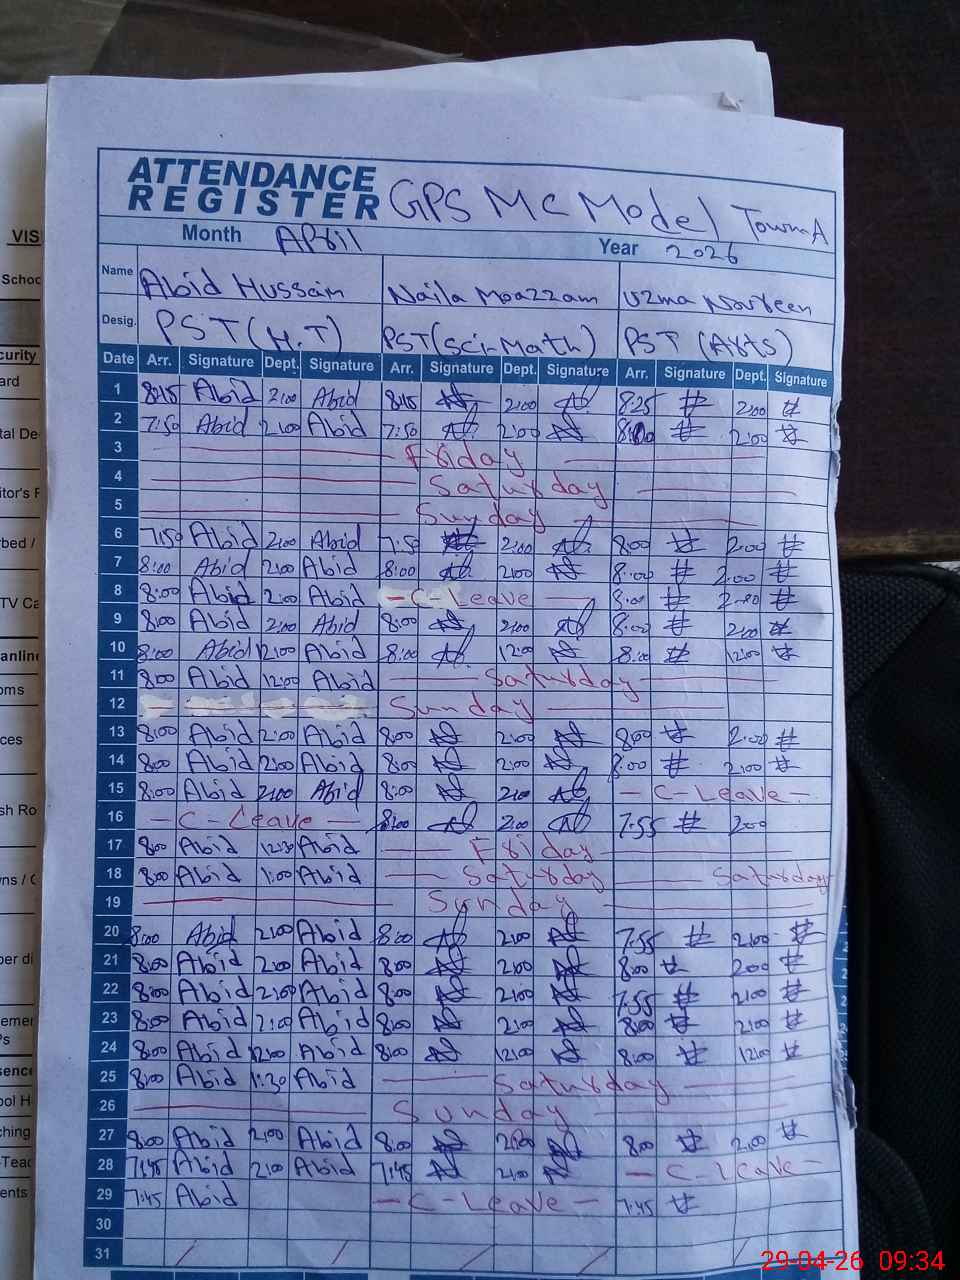 ATTENDANCE REGISTER GPS MC Model Town A
Month April Year 2026
Name Abid Hussain Naila Moazzam Uzma Noureen
Desig. PST(H.T) PST(Sci-Math) PST (Arts)
Date Arr. Signature Dept. Signature Arr. Signature Dept. Signature Arr. Signature Dept. Signature
1 8:15 Abid 2:00 Abid 8:15 2:00 8:25 2:00
2 7:50 Abid 2:00 Abid 7:50 2:00 8:00 2:00
3 Friday
4 Saturday
5 Sunday
6 7:50 Abid 2:00 Abid 7:50 2:00 8:00 2:00
7 8:00 Abid 2:00 Abid 8:00 2:00 8:00 2:00
8 8:00 Abid 2:00 Abid - C - Leave - 8:00 2:00
9 8:00 Abid 2:00 Abid 8:00 2:00 8:00 2:00
10 8:00 Abid 12:00 Abid 8:00 12:00 8:00 12:00
11 8:00 Abid 12:00 Abid Saturday
12 Sunday
13 8:00 Abid 2:00 Abid 8:00 2:00 8:00 2:00
14 8:00 Abid 2:00 Abid 8:00 2:00 8:00 2:00
15 8:00 Abid 2:00 Abid 8:00 2:00 - C - Leave -
16 - C - Leave - 8:00 2:00 7:55 2:00
17 8:00 Abid 12:30 Abid Friday
18 8:00 Abid 1:00 Abid Saturday Saturday
19 Sunday
20 8:00 Abid 2:00 Abid 8:00 2:00 7:55 2:00
21 8:00 Abid 2:00 Abid 8:00 2:00 8:00 2:00
22 8:00 Abid 2:00 Abid 8:00 2:00 7:55 2:00
23 8:00 Abid 2:00 Abid 8:00 2:00 8:00 2:00
24 8:00 Abid 12:00 Abid 8:00 12:00 8:00 12:00
25 8:00 Abid 1:30 Abid Saturday
26 Sunday
27 8:00 Abid 2:00 Abid 8:00 2:00 8:00 2:00
28 7:45 Abid 2:00 Abid 7:45 2:00 - C - Leave -
29 7:45 Abid - C - Leave - 7:45
30
31
29-04-26 09:34